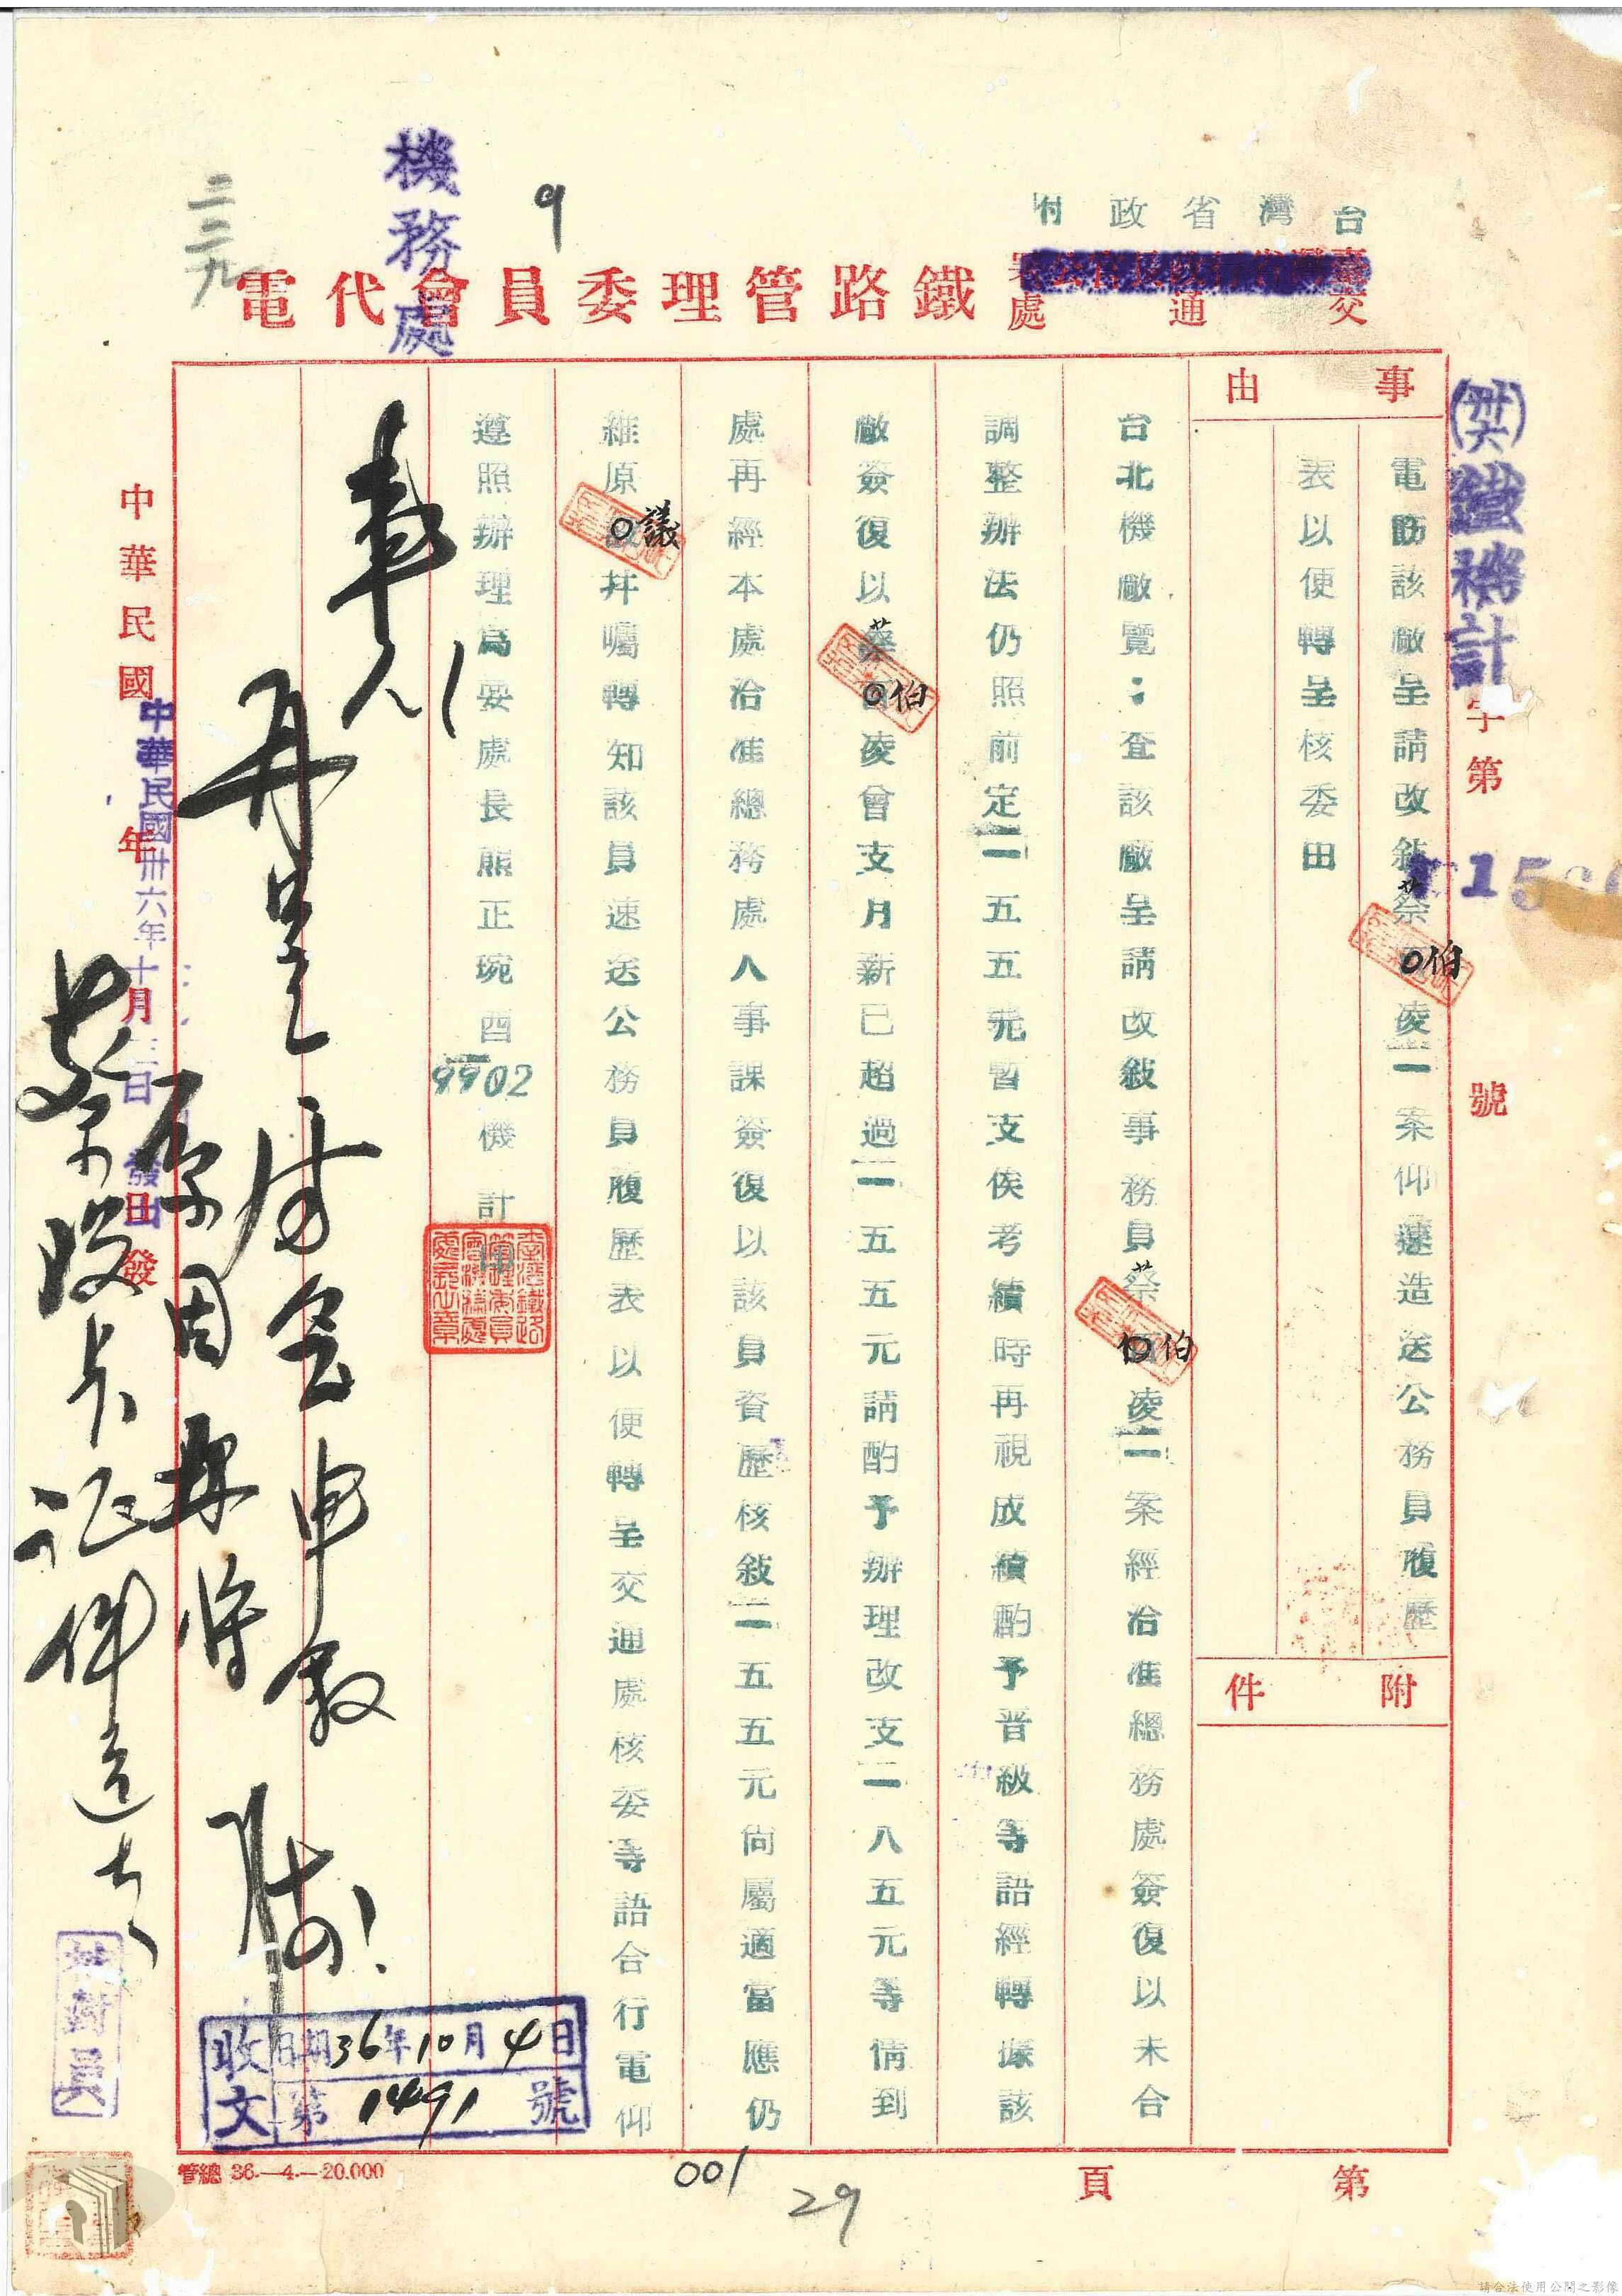 台灣省政府
交通處
鐵路管理委員會代電
機務處
9
二二九
(卅六)鐵機計字第
號
事由
電飭該廠呈請改敍蔡伯凌一案仰速造送公務員履歷
表以便轉呈核委由
附件
台北機廠覽：查該廠呈請改敍事務員蔡伯凌一案經洽准總務處簽復以未合
調整辦法仍照前定一五五元暫支俟考績時再視成績酌予晋級等語經轉據該
廠簽復以蔡伯凌會支月薪已超過一五五元請酌予辦理改支一八五元等情到
處再經本處洽准總務處人事課簽復以該員資歷核敍一五五元尙屬適當應仍
維原議幷囑轉知該員速送公務員履歷表以便轉呈交通處核委等語合行電仰
遵照辦理爲要處長熊正琬酉9902機計印
再呈
原因
証件
中華民國 年 月 日發
中華民國卅六年十月三日 發出
收文
日期36年10月4日
第1491號
管總 36.—4.—20.000
001
29
第 頁
請合法使用公開之影像